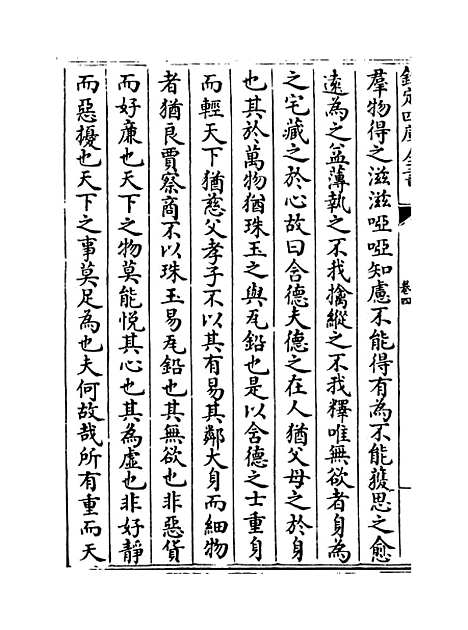 欽定四庫全書
卷四
羣物得之滋滋啞啞知慮不能得有為不能獲思之愈
遠為之益薄執之不我擒縱之不我釋唯無欲者身為
之宅藏之於心故曰含德夫德之在人猶父母之於身
也其於萬物猶珠玉之與瓦鉛也是以含德之士重身
而輕天下猶慈父孝子不以其有易其鄰大身而細物
者猶良賈察商不以珠玉易瓦鉛也其無欲也非惡貨
而好廉也天下之物莫能悅其心也其為虛也非好靜
而惡擾也天下之事莫足為也夫何故哉所有重而天